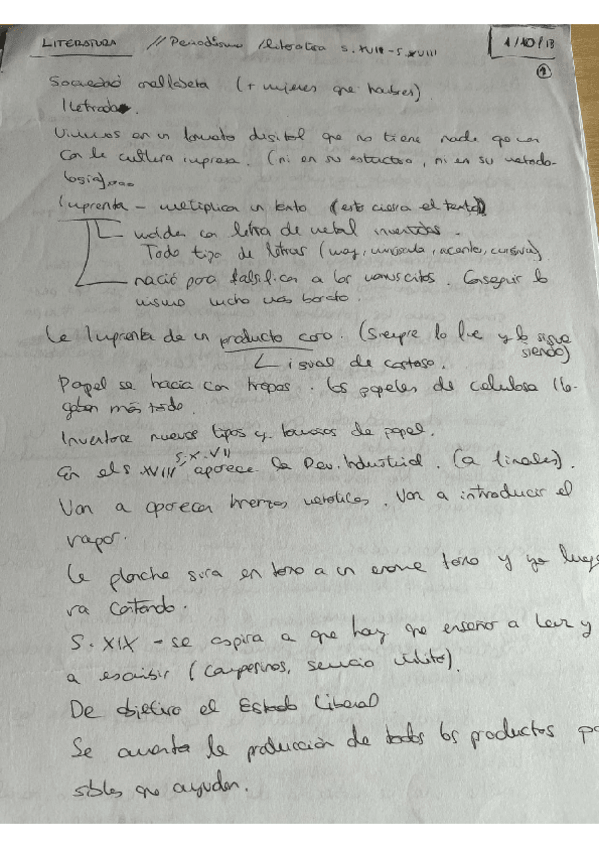 LITERATURA // Periodismo /literatura S. XVII - S. XVIII 1/10/13
1
Sociedad analfabeta (+ mujeres que hombres).
Iletrados.
Vivimos en un formato digital que no tiene nada que ver
con la cultura impresa. (ni en su estructura, ni en su metodo-
logía)....
Imprenta - multiplica un texto (esto cierra el texto)
moldes con letra de metal invertidas.
Todo tipo de letras (may, minúscula, acentos, cursiva)
nació para falsificar a los manuscritos. Conseguir lo
mismo mucho más barato.
La Imprenta da un producto caro. (Siempre lo fue y lo sigue
siendo)
igual de costoso.
Papel se hacía con trapos. Los papeles de celulosa lle-
gaban más tarde.
Inventore nuevos tipos y tamaños de papel.
S. XVII
En el S. XVIII aparece la Rev. Industrial. (a finales).
Van a aparecer . Van a introducir el
vapor.
La plancha gira en torno a un enorme torno y ya luego
va cortando.
S. XIX - se aspira a que hay que enseñar a leer y
a escribir (campesinos, servicio militar).
De objetivo el Estado Liberal
Se aumenta la producción de todos los productos po
sibles que ayuden.